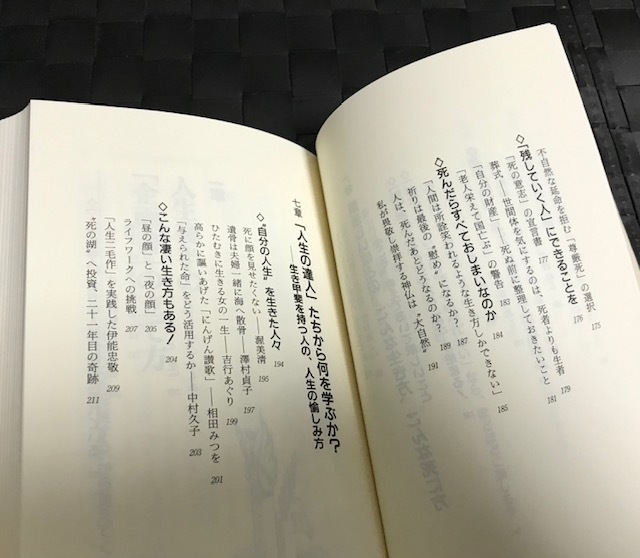 ◇「残していく人」にできることを 175
不自然な延命を拒む「尊厳死」の選択 176
「死の意志」の宣言書 177
葬式——世間体を気にするのは、死者よりも生者 179
「自分の財産」——死ぬ前に整理しておきたいこと 181
「老人栄えて国亡ぶ」の警告 183
◇死んだらすべておしまいなのか 184
「人間は所詮笑われるような生き方しかできない」 185
祈りは最後の〝慰め〟になるか? 187
人は、死んだあとどうなるのか? 189
私が畏敬し崇拝する神仏は〝大自然〟 191
七章 「人生の達人」たちから何を学ぶか?
——生き甲斐を持つ人の、人生の愉しみ方
◇〝自分の人生〟を生きた人々 194
死に顔を見せたくない——渥美清 195
遺骨は夫婦一緒に海へ散骨——澤村貞子 197
ひたむきに生きる女の一生——吉行あぐり 199
高らかに謳いあげた「にんげん讃歌」——相田みつを 201
「与えられた命」をどう活用するか——中村久子 203
◇こんな凄い生き方もある! 204
「昼の顔」と「夜の顔」 205
ライフワークへの挑戦 207
「人生二毛作」を実践した伊能忠敬 209
〝死の湖〟へ投資、二十一年目の奇跡 211